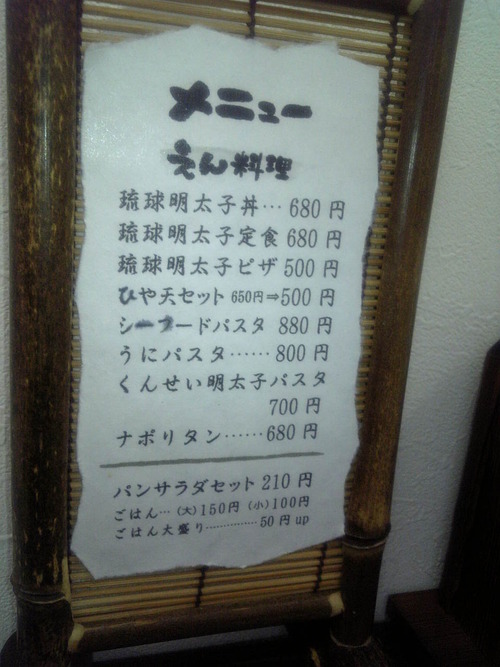 メニュー
えん料理
琉球明太子丼… 680 円
琉球明太子定食 680 円
琉球明太子ピザ 500 円
ひや天セット 650円⇒500 円
シーフードパスタ 880 円
うにパスタ…… 800 円
くんせい明太子パスタ
700 円
ナポリタン……680 円
パンサラダセット 210 円
ごはん…(大)150円 (小)100円
ごはん大盛り…………… 50 円 up